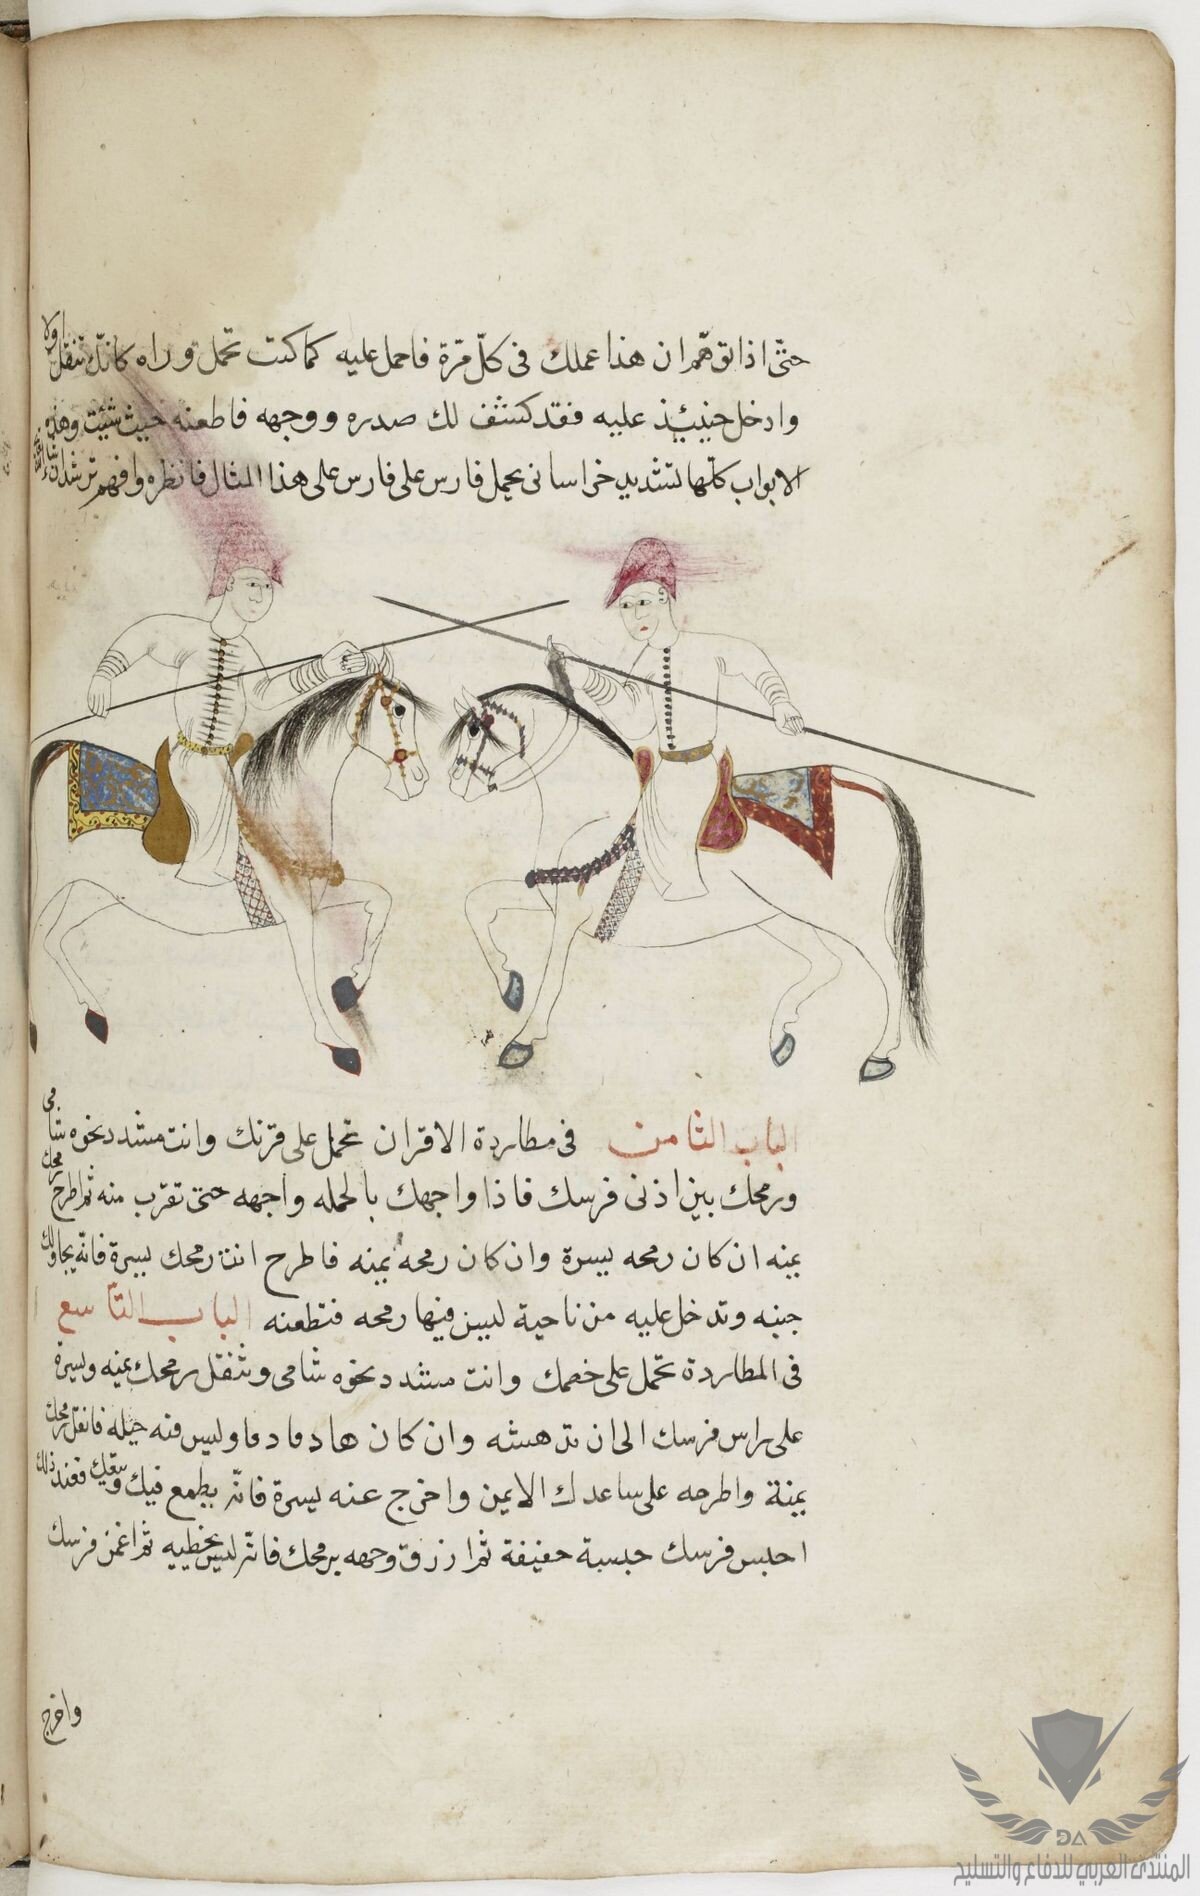 حتّى اذا توهّم ان هذا عملك فى كلّ مرّة فاحمل عليه كما كنت تحمل وراه كانّك تنقل اولا
وادخل حينئذ عليه فقد كشف لك صدره ووجهه فاطعنه حيث شئت وهذه
الابواب كلّها لتشديد خراسانى يحمل فارس على فارس على هذا المثال فانظره وافهم ترشد ان شاء الله
الباب الثامن فى مطاردة الاقران تحمل على قرنك وانت مشدد نحوه شامى
ورمحك بين اذنى فرسك فاذا واجهك بالحمله واجهه حتى تقرب منه ثم اطرح رمحك
يمنه ان كان رمحه يسرة وان كان رمحه يمنه فاطرح انت رمحك يسرة فانّه يجاولك
جنبه وتدخل عليه من ناحية ليس فيها رمحه فتطعنه الباب التاسع
فى المطاردة تحمل على خصمك وانت مشدد نحوه شامى وتنقل رمحك يمنه ويسرة
على راس فرسك الى ان تدهشه وان كان هادما دما وليس فيه حيله فانقل رمحك
يمنة واطرحه على ساعدك الايمن واخرج عنه يسرة فانّه يطمع فيك فعند ذلك
احبس فرسك حبسة خفيفة ثم ازرق وجهه برمحك فانّه ليس يخطيه ثم اغمز فرسك
واخرج
DA
المنتدى العربي للدفاع والتسليح